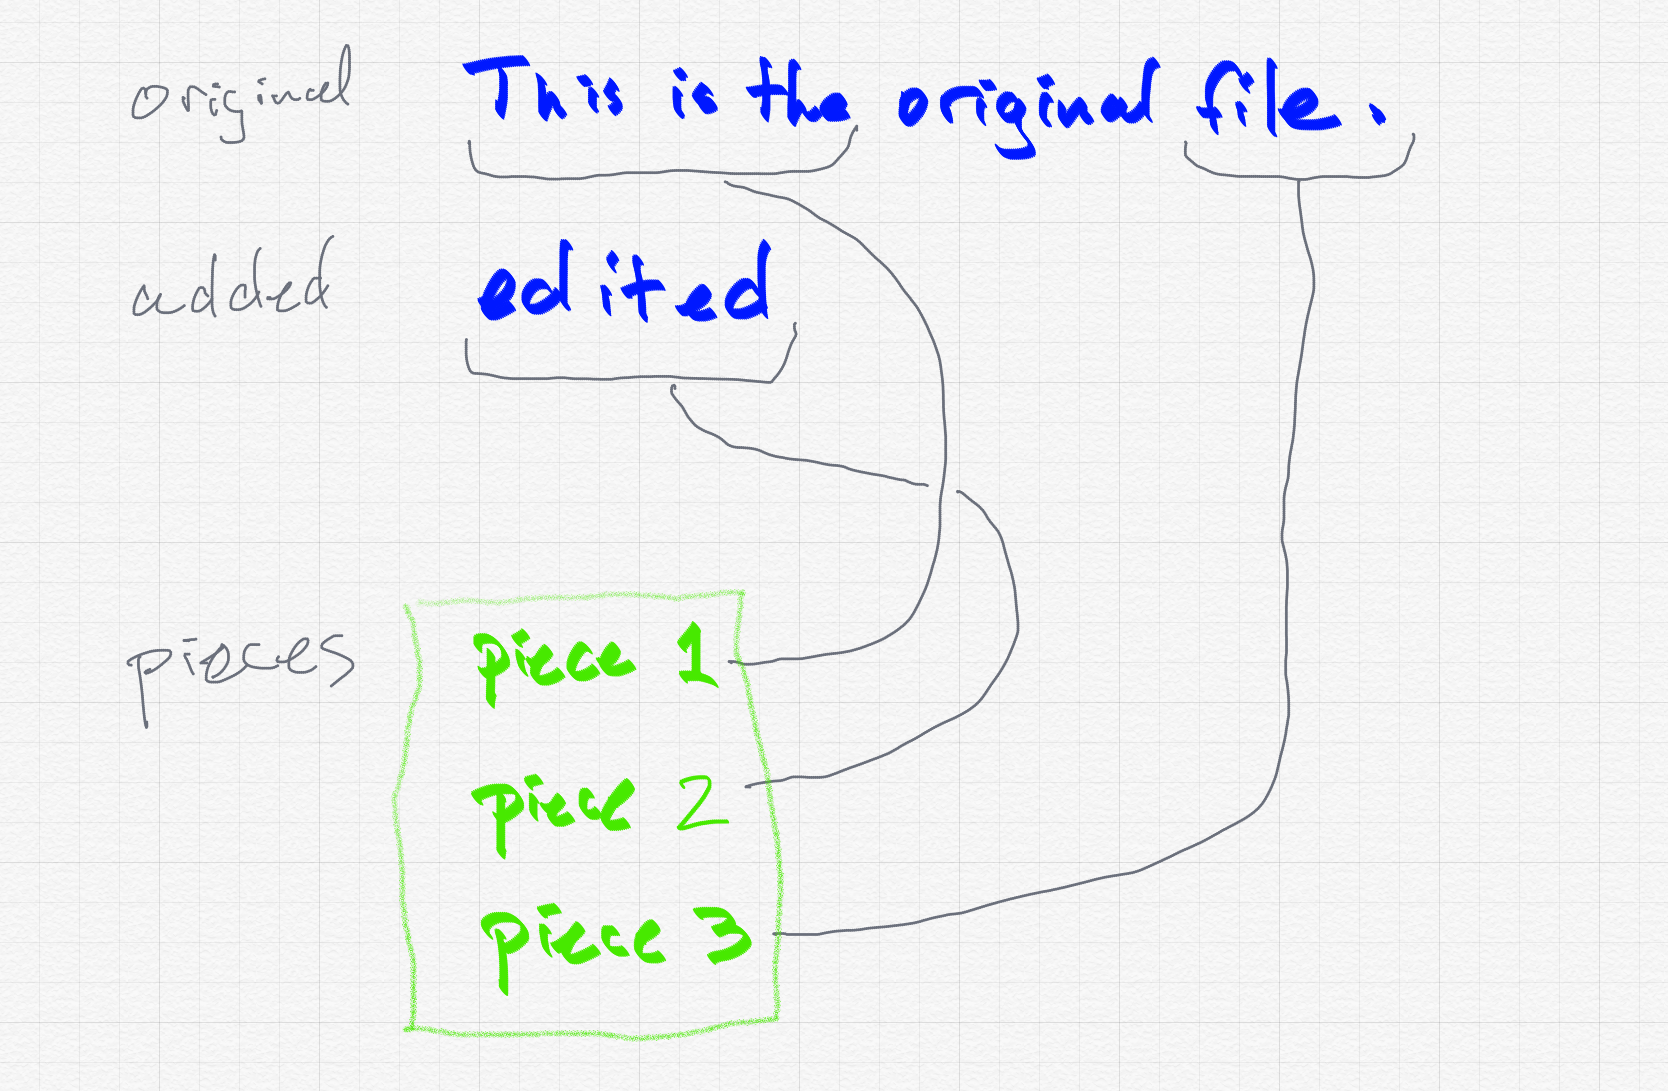 original This is the original file.
added edited
pieces piece 1
piece 2
piece 3